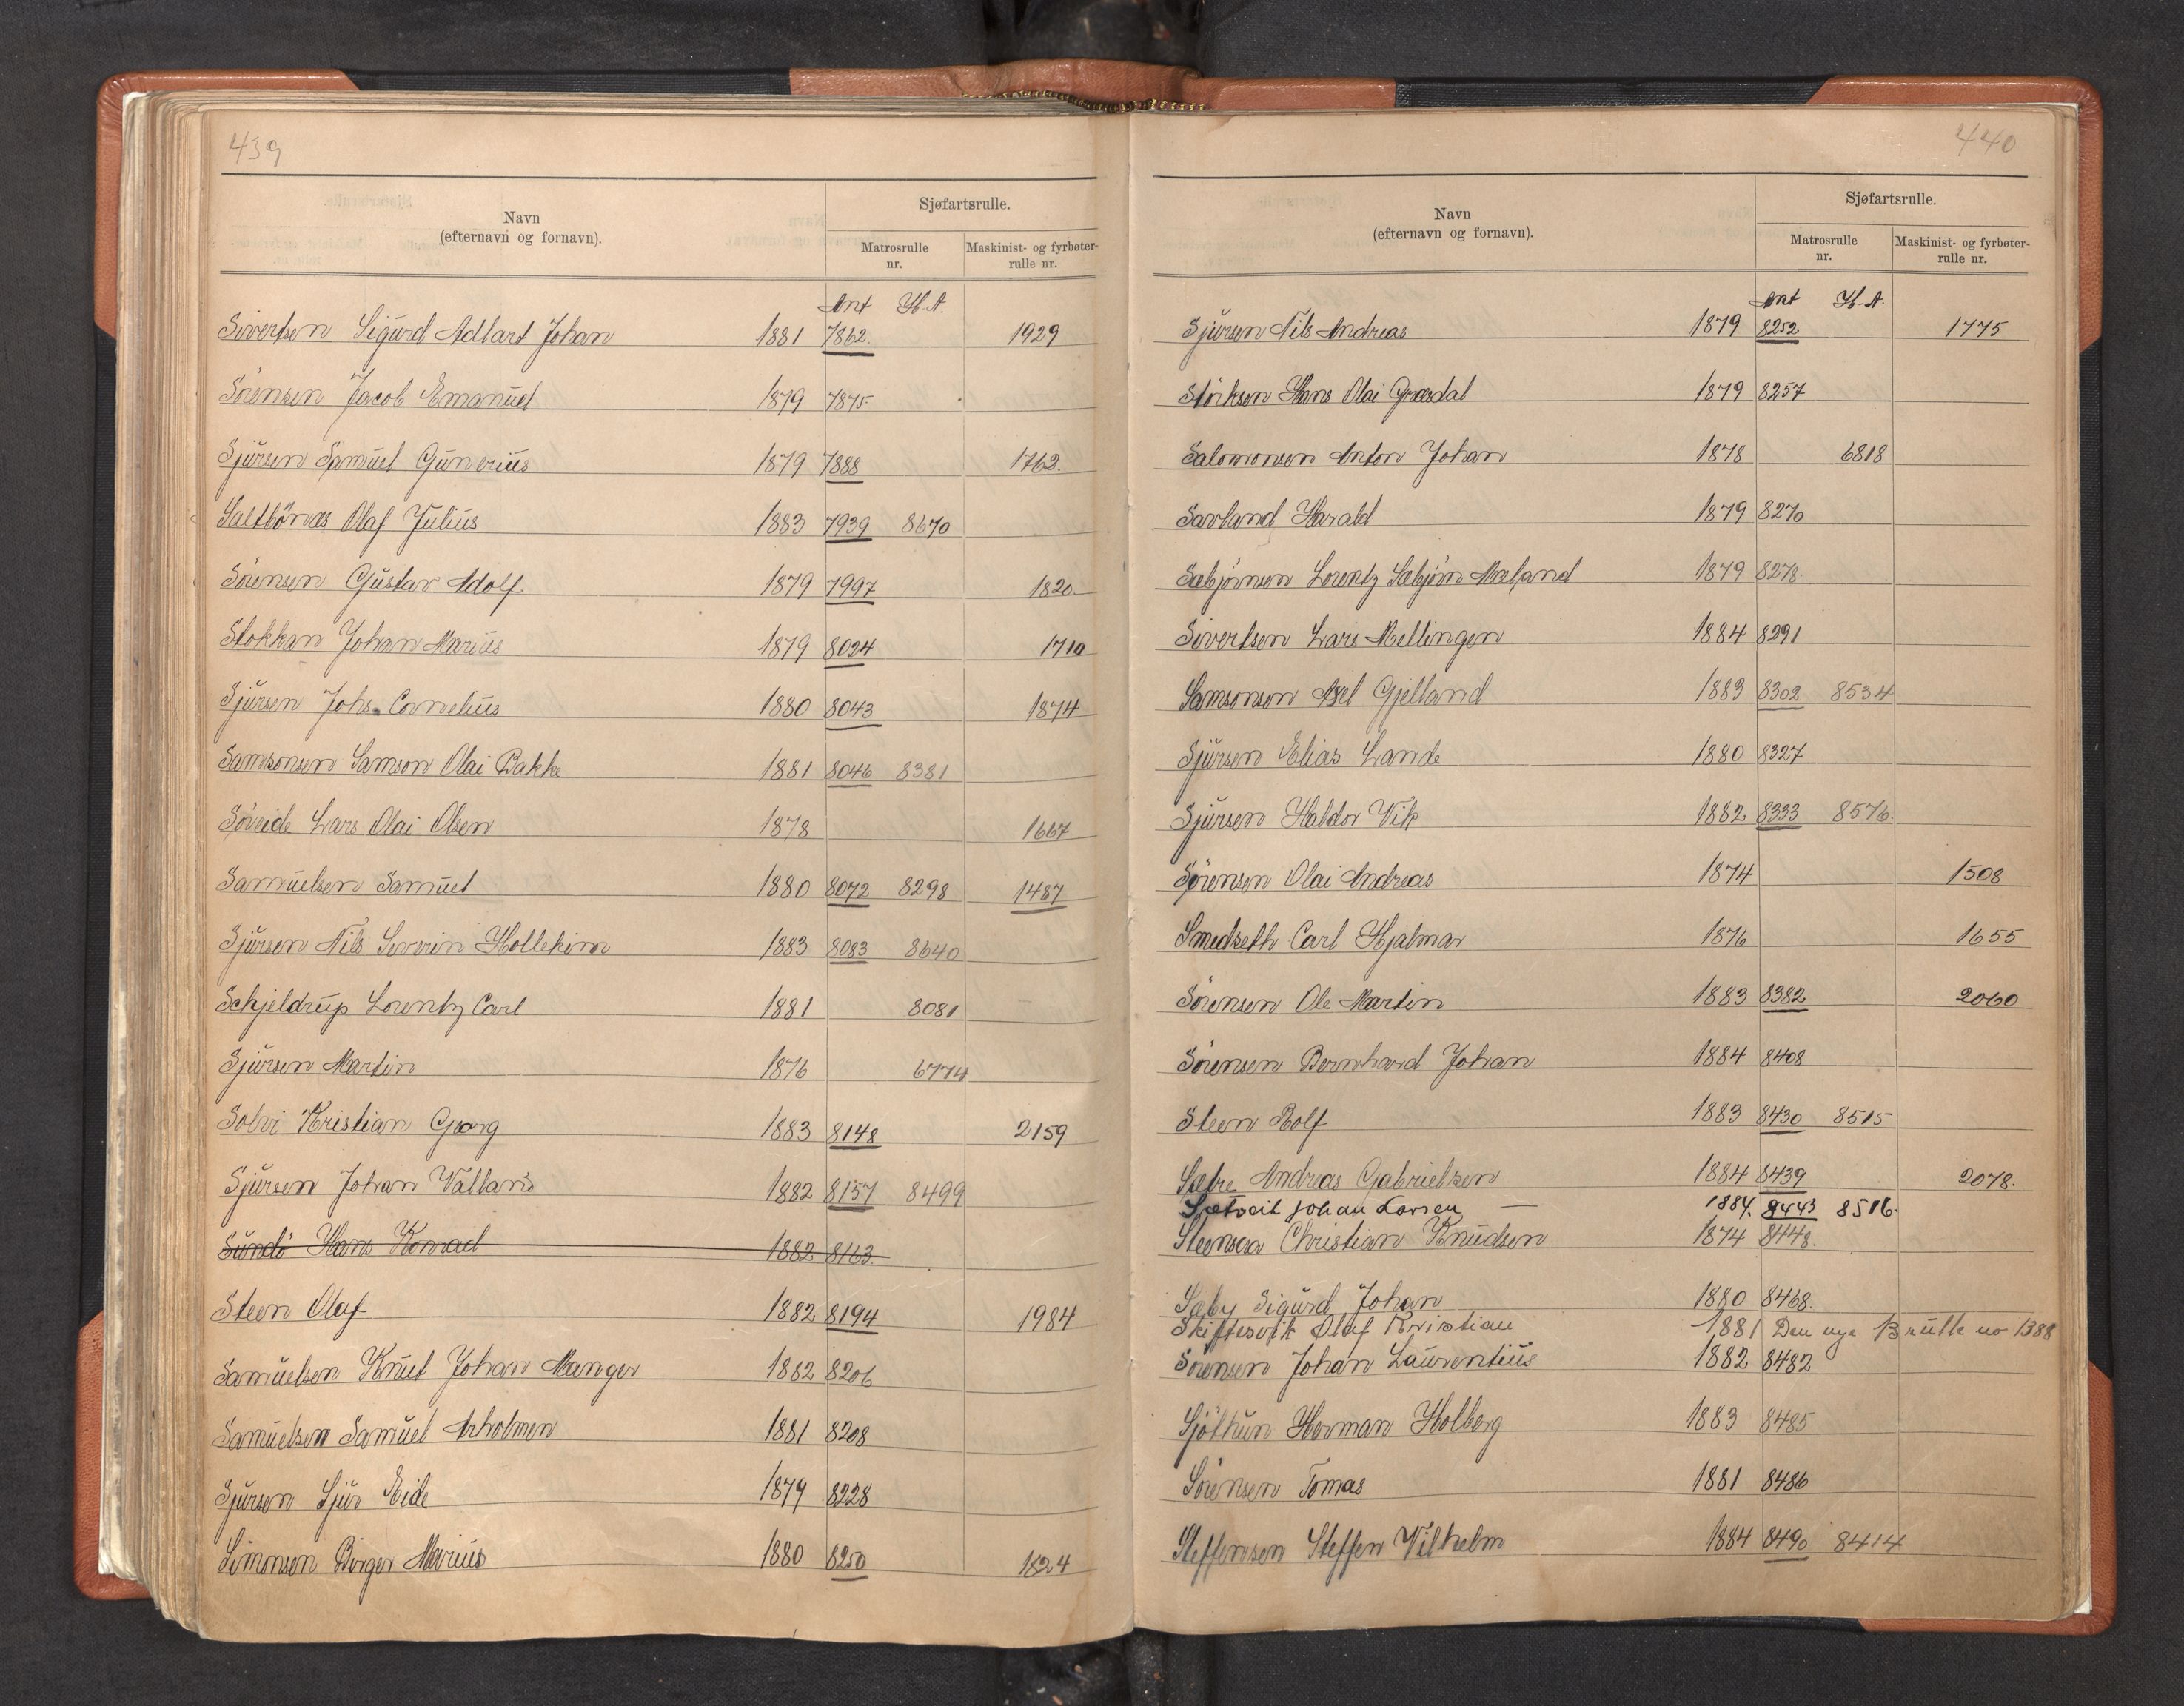 439
Navn
(efternavn og fornavn).
Sjøfartsrulle.
Matrosrulle
nr.
Maskinist- og fyrbøter-
rulle nr.
Ant H.A.
Sivertsen Sigurd Adlart Johan 1881 7862. 1929
Sörensen Jacob Emanuel 1879 7875
Sjursen Samuel Gunerius 1879 7888 1762.
Saltbönas Olaf Julius 1883 7939 8670
Sörensen Gustav Adolf 1879 7997 1820.
Stokkan Johan Marius 1879 8024 1710
Sjursen Johs. Cornelius 1880 8043 1874
Samsonsen Samson Olai Bakke 1881 8046 8381
Söveide Lars Olai Olsen 1878 1667
Samuelsen Samuel 1880 8072 8298 1487
Sjursen Nils Severin Hollekim 1883 8083 8640
Schjeldrup Lorentz Carl 1881 8081
Sjursen Martin 1876 6774
Solvi Kristian Georg 1883 8148 2159
Sjursen Johan Valland 1882 8157 8499
Sundö Hans Konrad 1882 8163
Steen Olaf 1882 8194 1984
Samuelsen Knut Johan Manger 1882 8206
Samuelsen Samuel Arholmen 1881 8208
Sjursen Sjur Eide 1879 8228
Simonsen Birger Marius 1880 8250 1824
440
Navn
(efternavn og fornavn).
Sjøfartsrulle.
Matrosrulle
nr.
Maskinist- og fyrbøter-
rulle nr.
Ant H.A.
Sjursen Nils Andreas 1879 8252 1775
Störksen Hans Olai Græsdal 1879 8257
Salomonsen Anton Johan 1878 6818
Savland Harald 1879 8270
Sæbjörnsen Lorentz Sæbjörn Mæland 1879 8278.
Sivertsen Lars Mellingen 1884 8291
Samsonsen Axel Gjelland 1883 8302 8534
Sjursen Elias Lande 1880 8327
Sjursen Haldor Vik 1882 8333 8576.
Sörensen Olai Andreas 1874 1508
Smedseth Carl Hjalmar 1876 1655
Sörensen Ole Martin 1883 8382 2060
Sörensen Bernhard Johan 1884 8408
Steen Rolf 1883 8430 8515
Sætre Andreas Gabrielsen 1884 8439 2078.
Sætveit Johan Larsen — 1884. 8443 8516.
Christian Knudsen 1874 8448.
Sæby Sigurd Johan 1880 8468.
Skiftesvik Olaf Kristian 1881 Den nye B rulle no 1388
Sörensen Johan Laurentius 1882 8482
Sjöthun Herman Holberg 1883 8485
Sörensen Tomas 1881 8486
Steffensen Steffen Vilhelm 1884 8490 8414